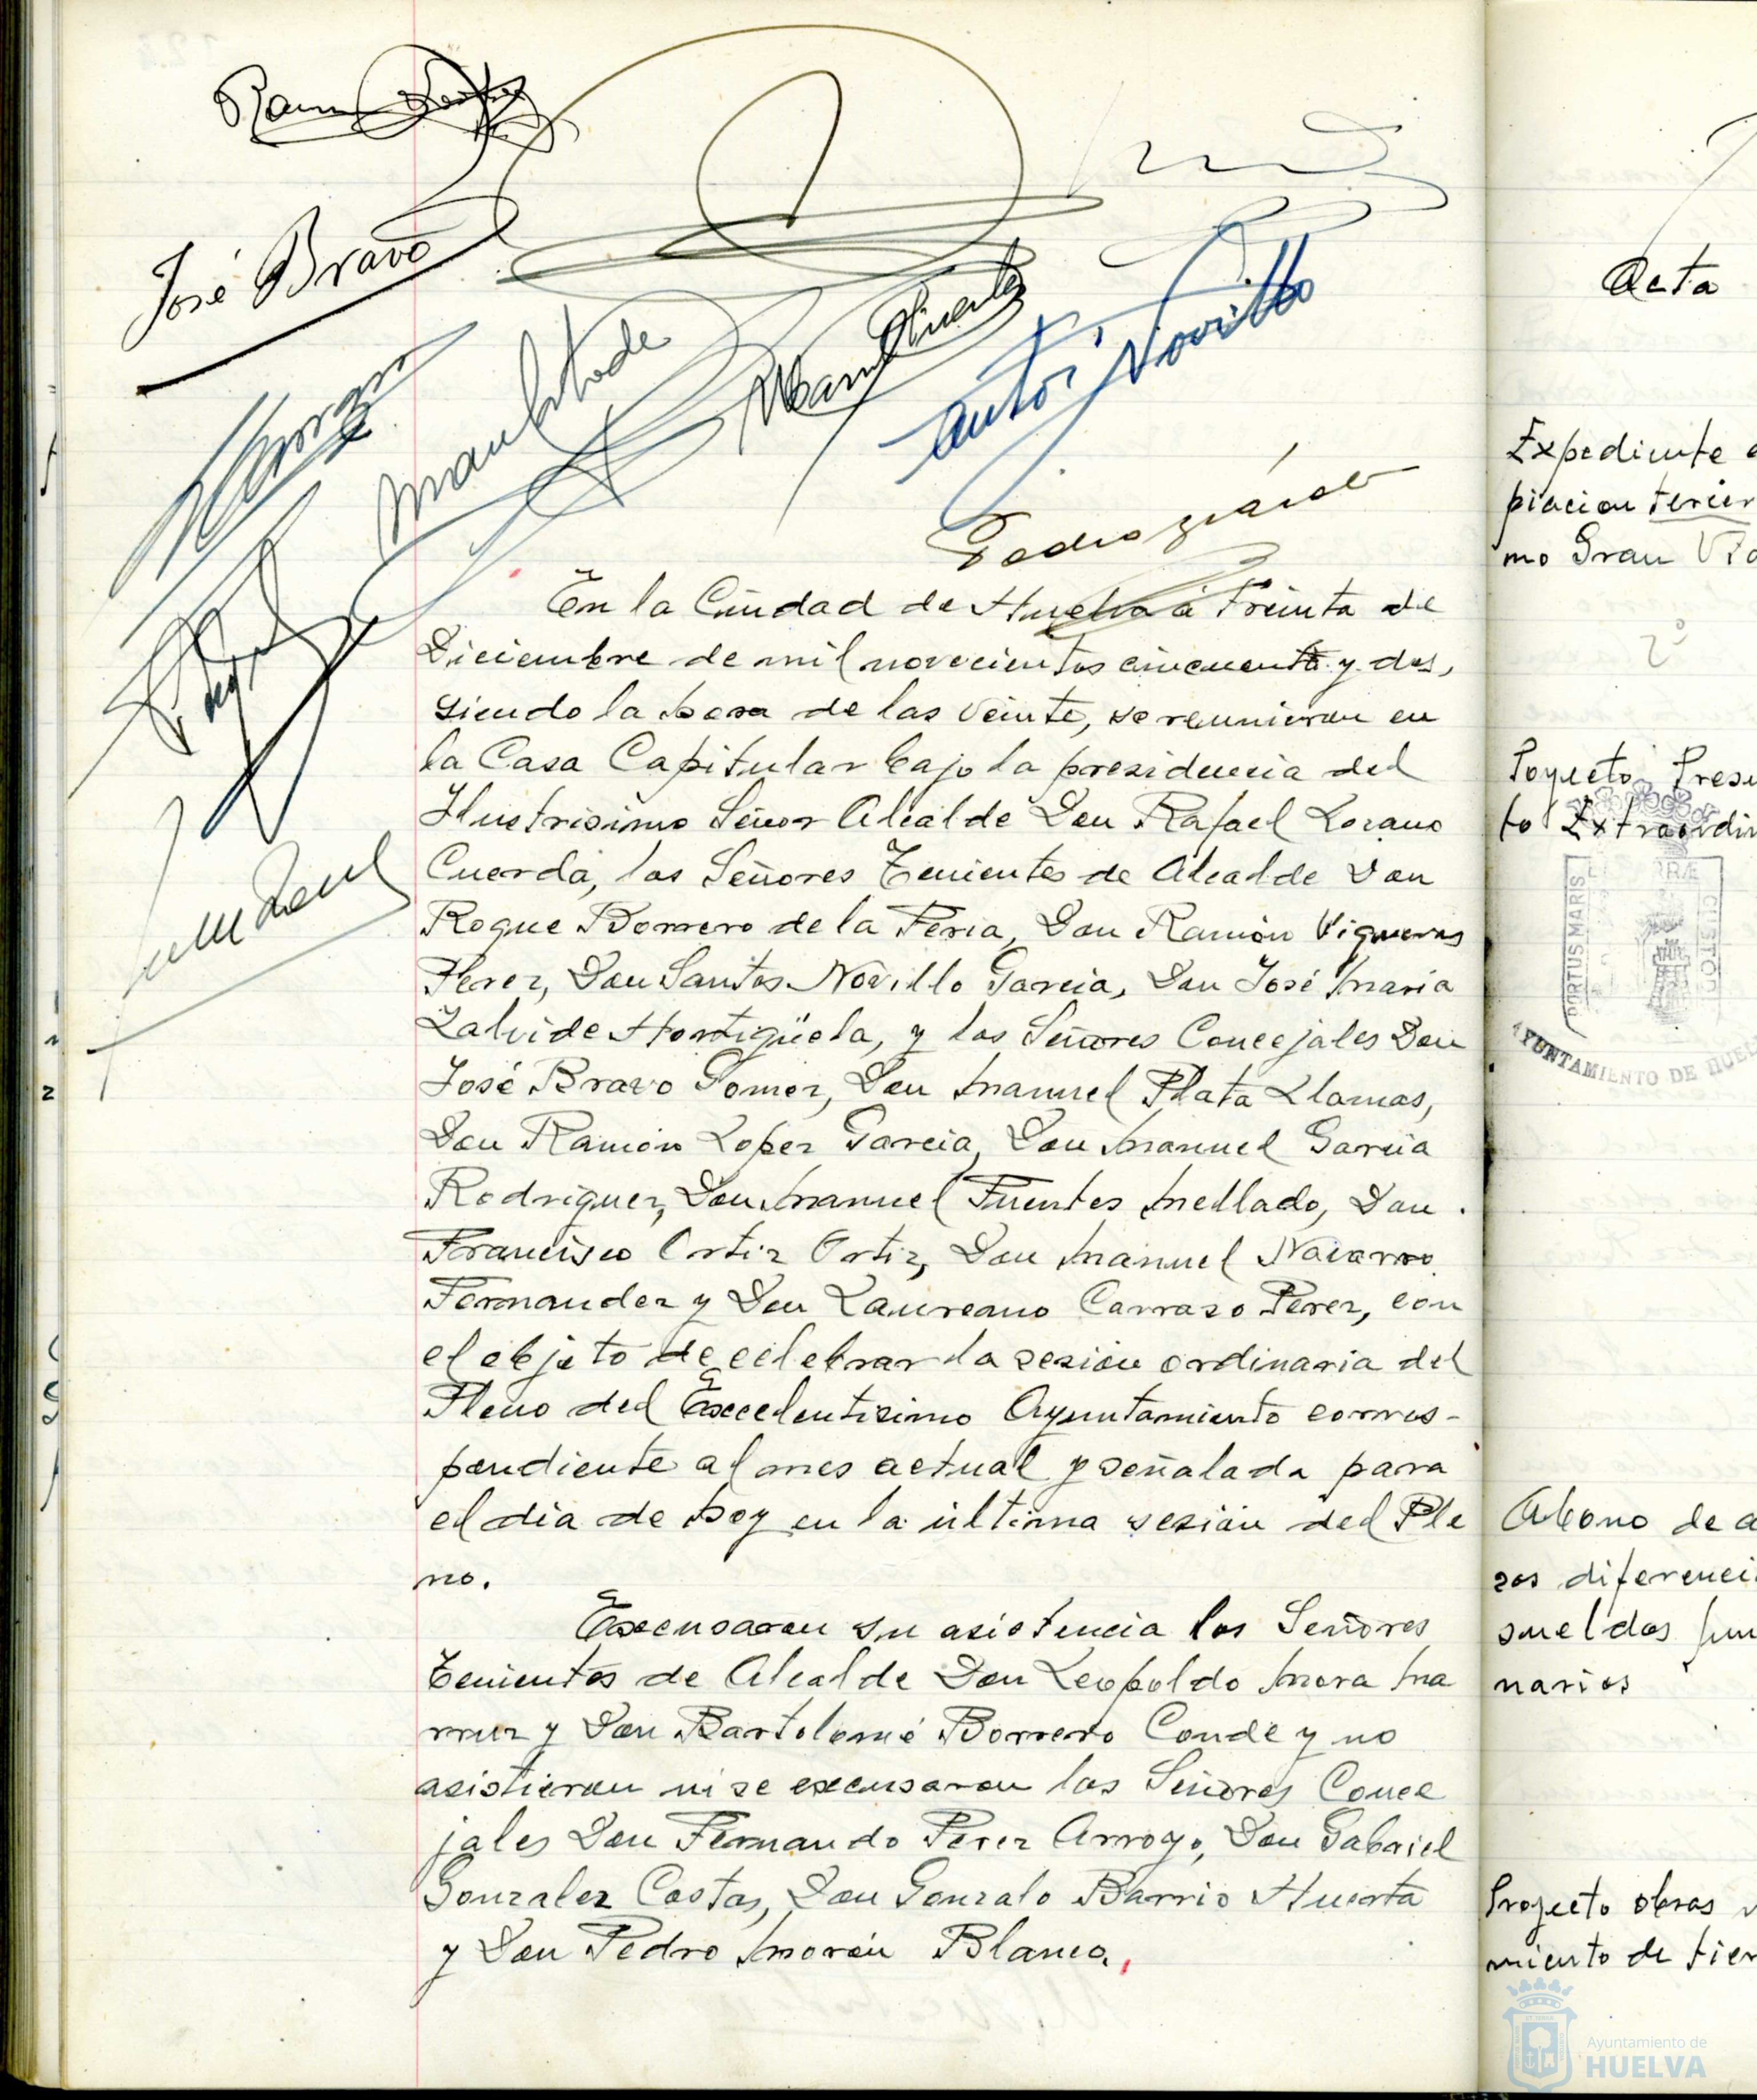 José Bravo
Manuel
Novillo
Pedro
En la Ciudad de Huelva a treinta de
Diciembre de mil novecientos cincuenta y dos,
siendo la hora de las veinte, se reunieron en
la Casa Capitular bajo la presidencia del
Ilustrisimo Señor Alcalde Don Rafael Lozano
Cuerda, los Señores Tenientes de Alcalde Don
Roque Borrero de la Feria, Don Ramón Vigueras
Perez, Don Santos Novillo Garcia, Don José Maria
Zalvide Hortigüela, y los Señores Concejales Don
José Bravo Gomez, Don Manuel Plata Llamas,
Don Ramón Lopez Garcia, Don Manuel Garcia
Rodriguez, Don Manuel Fuentes Mellado, Don
Francisco Ortiz Ortiz, Don Manuel Navarro
Fernandez y Don Laureano Carrazo Perez, con
el objeto de celebrar la sesión ordinaria del
Pleno del Excelentisimo Ayuntamiento corres-
pondiente al mes actual y señalada para
el dia de hoy en la última sesión del Ple
no.
Excusaron su asistencia los Señores
Tenientes de Alcalde Don Leopoldo Mora Ma
rruz y Don Bartolomé Borrero Conde y no
asistieron ni se excusaron los Señores Conce
jales Don Fernando Perez Arroyo, Don Gabriel
Gonzalez Costas, Don Gonzalo Barrio Huerta
y Don Pedro Morón Blanco.
Acta
Expediente
piacion tercer
mo Gran
2º
to Extraordin
PORTUS MARIS
CUSTOD
AYUNTAMIENTO DE HUEL
Abono de a
zos diferenci
sueldos fun
narios
Proyecto obras
miento de tier
Ayuntamiento de
HUELVA